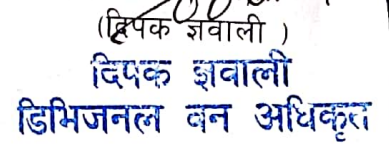 (दिपक ज्ञवाली )
दिपक ज्ञवाली
डिभिजनल वन अधिकृत